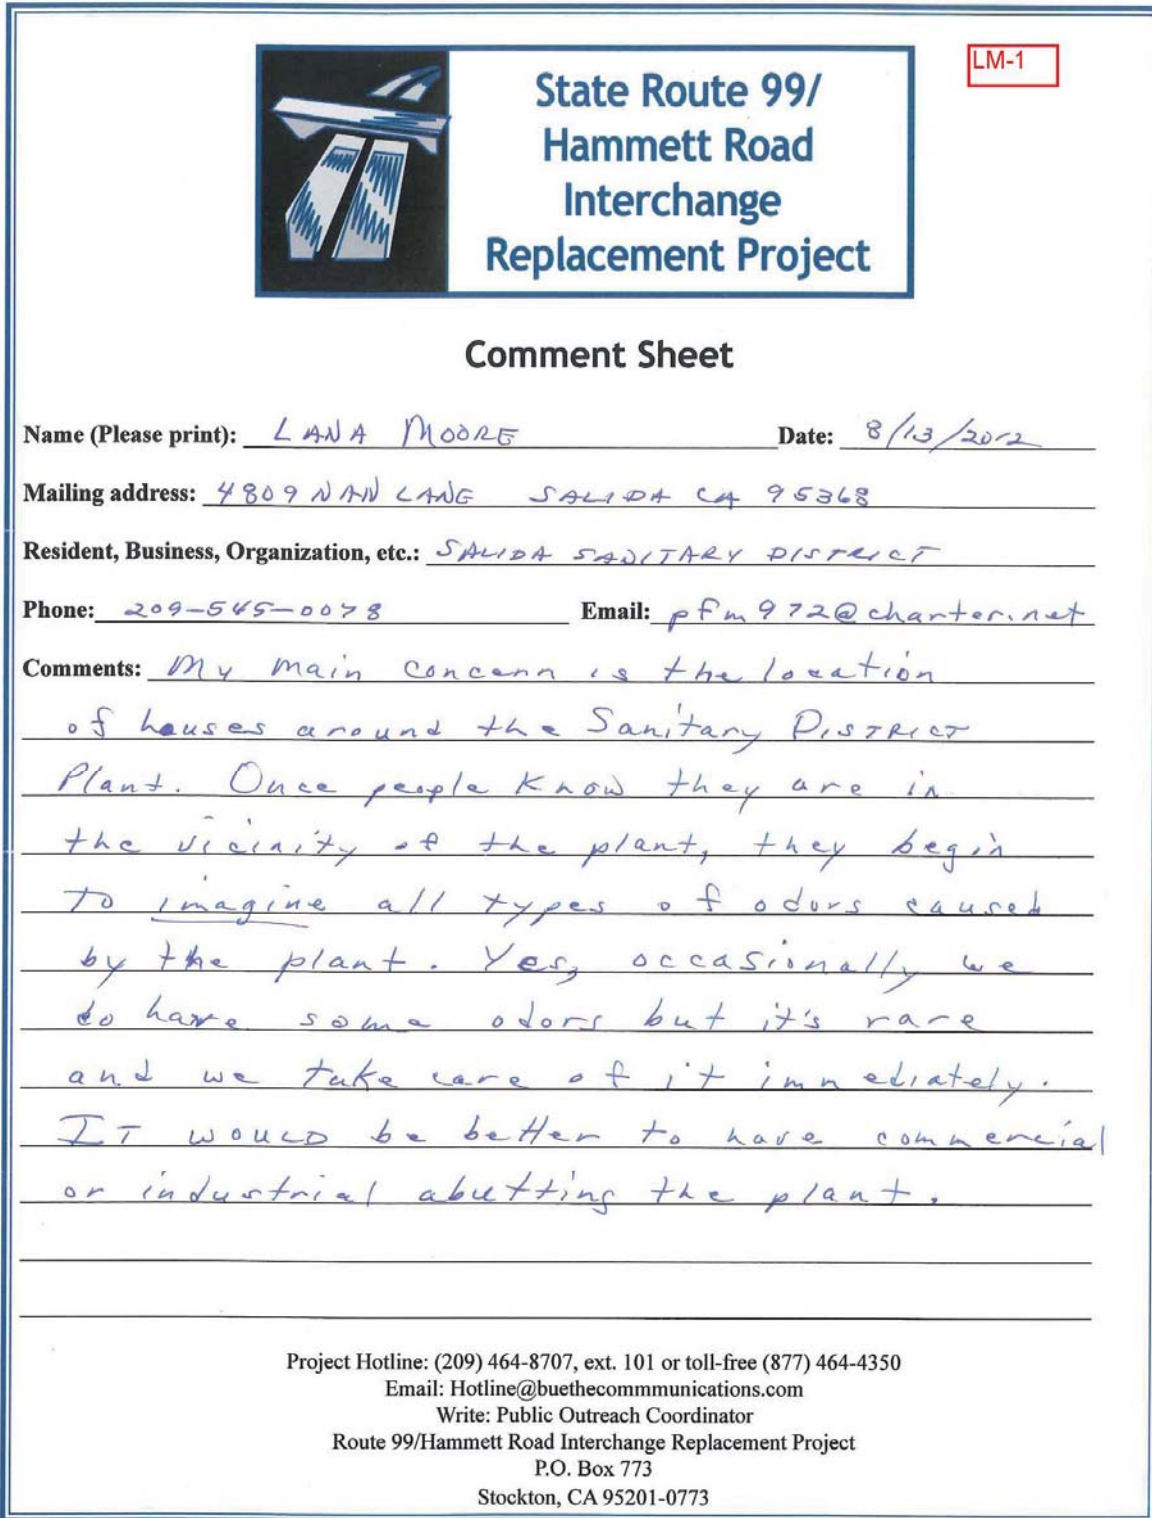 LM-1
State Route 99/
Hammett Road
Interchange
Replacement Project
Comment Sheet
Name (Please print): LANA MOORE Date: 8/13/2012
Mailing address: 4809 NAN LANE SALIDA CA 95368
Resident, Business, Organization, etc.: SALIDA SANITARY DISTRICT
Phone: 209-545-0078 Email: pfm972@charter.net
Comments: My main concern is the location
of houses around the Sanitary DISTRICT
Plant. Once people know they are in
the vicinity of the plant, they begin
To imagine all types of odors caused
by the plant. Yes, occasionally we
do have some odors but it's rare
and we take care of it immediately.
IT WOULD be better to have commercial
or industrial abutting the plant.
Project Hotline: (209) 464-8707, ext. 101 or toll-free (877) 464-4350
Email: Hotline@buethecommmunications.com
Write: Public Outreach Coordinator
Route 99/Hammett Road Interchange Replacement Project
P.O. Box 773
Stockton, CA 95201-0773